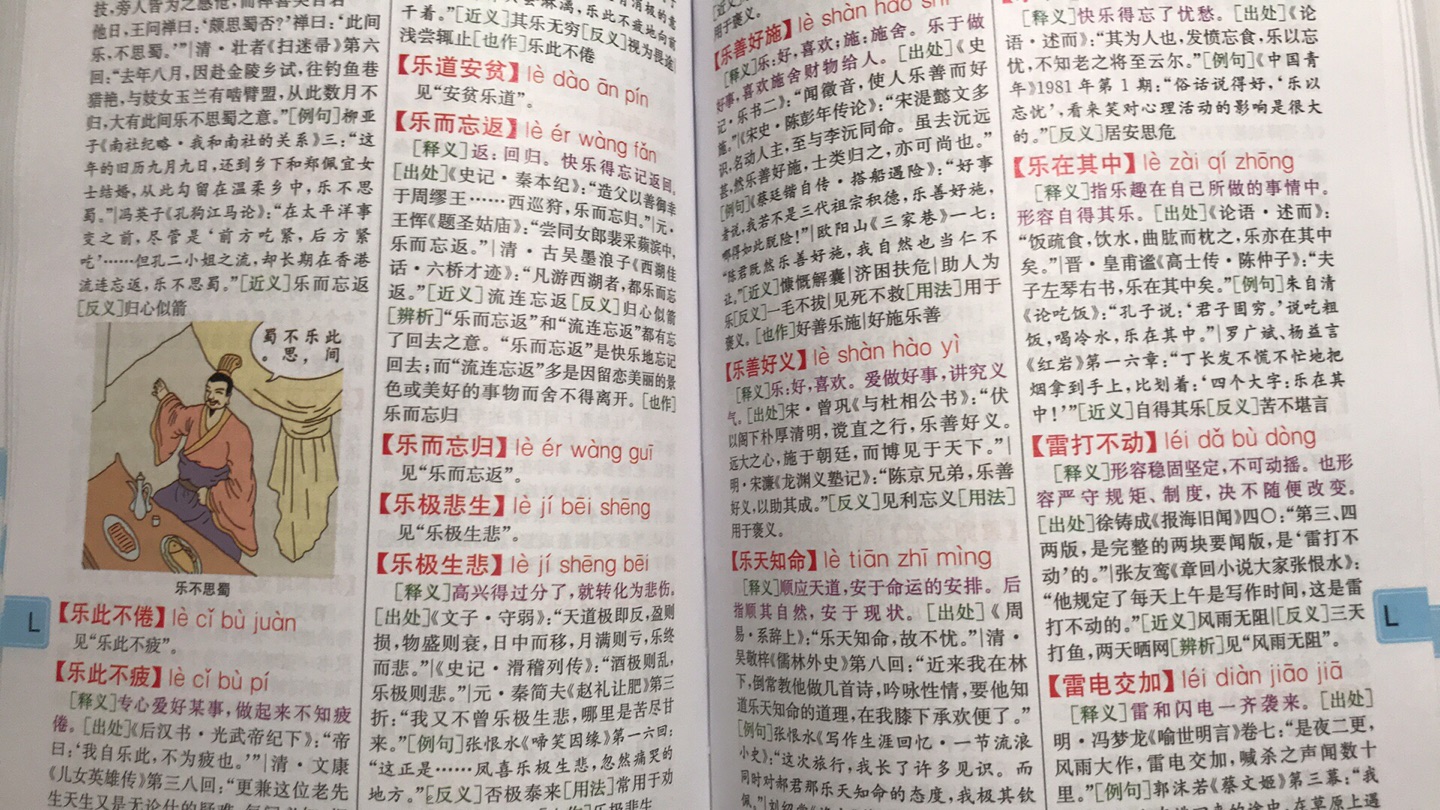 技，旁人皆为之感怆，而禅喜笑自若
他日，王问禅曰：‘颇思蜀否？’禅曰：‘此间
乐，不思蜀。’”|清·壮者《扫迷帚》第六
回：“去年八月，因赴金陵乡试，往钓鱼巷
猎艳，与妓女玉兰有啮臂盟，从此数月不
归，大有此间乐不思蜀之意。”[例句]柳亚
子《南社纪略·我和南社的关系》三：“这
年的旧历九月九日，还到乡下和郑佩宜女
士结婚，从此勾留在温柔乡中，乐不思
蜀。”|冯英子《孔狗江马论》：“在太平洋事
变之前，尽管是‘前方吃紧，后方紧
吃’……但孔二小姐之流，却长期在香港
流连忘返，乐不思蜀。”[近义]乐而忘返
[反义]归心似箭
此间乐，不思蜀。
乐不思蜀
【乐此不倦】lè cǐ bù juàn
见“乐此不疲”。
【乐此不疲】lè cǐ bù pí
[释义]专心爱好某事，做起来不知疲
倦。[出处]《后汉书·光武帝纪下》：“帝
曰：‘我自乐此，不为疲也。’”|清·文康
《儿女英雄传》第三八回：“更兼这位老先
L
干着。”[近义]其乐无穷[反义]视为畏途
浅尝辄止[也作]乐此不倦
【乐道安贫】lè dào ān pín
见“安贫乐道”。
【乐而忘返】lè ér wàng fǎn
[释义]返：回归。快乐得忘记返回。
[出处]《史记·秦本纪》：“造父以善御幸
于周缪王……西巡狩，乐而忘归。”|元·
王恽《题圣姑庙》：“尝同女郎裴采蘋滨中，
乐而忘返。”|清·古吴墨浪子《西湖佳
话·六桥才迹》：“凡游西湖者，都乐而忘
返。”[近义]流连忘返[反义]归心似箭
[辨析]“乐而忘返”和“流连忘返”都有忘
了回去之意。“乐而忘返”是快乐地忘记
回去；而“流连忘返”多是因留恋美丽的景
色或美好的事物而舍不得离开。[也作]
乐而忘归
【乐而忘归】lè ér wàng guī
见“乐而忘返”。
【乐极悲生】lè jí bēi shēng
见“乐极生悲”。
【乐极生悲】lè jí shēng bēi
[释义]高兴得过分了，就转化为悲伤。
[出处]《文子·守弱》：“天道极即反，盈则
损，物盛则衰，日中而移，月满则亏，乐终
而悲。”|《史记·滑稽列传》：“酒极则乱，
乐极则悲。”|元·秦简夫《赵礼让肥》第三
折：“我又不曾乐极生悲，哪里是苦尽甘
来。”[例句]张恨水《啼笑因缘》第一六回：
“这正是……凤喜乐极生悲，忽然痛哭的
地方。”[反义]否极泰来[用法]常用于劝
用于褒义。
【乐善好施】lè shàn hào shī
[释义]乐：好，喜欢；施：施舍。乐于做
好事，喜欢施舍财物给人。[出处]《史
记·乐书二》：“闻徵音，使人乐善而好
施。”|《宋史·陈彭年传论》：“宋湜懿文多
识，名动人主，至与李沆同命。虽去沆远
甚，然乐善好施，士类归之，亦可尚也。”
[例句]《蔡廷锴自传·搭船遇险》：“好事
者说，我若不是三代祖宗积德，乐善好施，
哪得如此脱险！”|欧阳山《三家巷》一七：
“陈君既然乐善好施，我自然也当仁不
让。”[近义]慷慨解囊|济困扶危|助人为
乐[反义]一毛不拔|见死不救[用法]用于
褒义。[也作]好善乐施|好施乐善
【乐善好义】lè shàn hào yì
[释义]乐：好，喜欢。爱做好事，讲究义
气。[出处]宋·曾巩《与杜相公书》：“伏
以阁下朴厚清明，谠直之行，乐善好义。
远大之心，施于朝廷，而博见于天下。”|
明·宋濂《龙渊义塾记》：“陈京兄弟，乐善
好义，以助其成。”[反义]见利忘义[用法]
用于褒义。
【乐天知命】lè tiān zhī mìng
[释义]顺应天道，安于命运的安排。后
指顺其自然，安于现状。[出处]《周
易·系辞上》：“乐天知命，故不忧。”|清·
吴敬梓《儒林外史》第八回：“近来我在林
下，倒常教他做几首诗，吟咏性情，要他知
道乐天知命的道理，在我膝下承欢便了。”
[例句]张恨水《写作生涯回忆·一节流浪
小史》：“这次旅行，我长了许多见识。而
同时对郝君那乐天知命的态度，我极其钦
[释义]快乐得忘了忧愁。[出处]《论
语·述而》：“其为人也，发愤忘食，乐以忘
忧，不知老之将至云尔。”[例句]《中国青
年》1981年第1期：“俗话说得好，‘乐以
忘忧’，看来笑对心理活动的影响是很大
的。”[反义]居安思危
【乐在其中】lè zài qí zhōng
[释义]指乐趣在自己所做的事情中。
形容自得其乐。[出处]《论语·述而》：
“饭疏食，饮水，曲肱而枕之，乐亦在其中
矣。”|晋·皇甫谧《高士传·陈仲子》：“夫
子左琴右书，乐在其中矣。”[例句]朱自清
《论吃饭》：“孔子说：‘君子固穷。’说吃粗
饭，喝冷水，乐在其中。”|罗广斌、杨益言
《红岩》第一六章：“丁长发不慌不忙地把
烟拿到手上，比划着：‘四个大字：乐在其
中！’”[近义]自得其乐[反义]苦不堪言
【雷打不动】léi dǎ bù dòng
[释义]形容稳固坚定，不可动摇。也形
容严守规矩、制度，决不随便改变。
[出处]徐铸成《报海旧闻》四〇：“第三、四
两版，是完整的两块要闻版，是‘雷打不
动’的。”|张友鸾《章回小说大家张恨水》：
“他规定了每天上午是写作时间，这是雷
打不动的。”[近义]风雨无阻|[反义]三天
打鱼，两天晒网[辨析]见“风雨无阻”。
【雷电交加】léi diàn jiāo jiā
[释义]雷和闪电一齐袭来。[出处]
明·冯梦龙《喻世明言》卷七：“是夜二更，
风雨大作，雷电交加，喊杀之声闻数十
里。”[例句]郭沫若《蔡文姬》第三幕：“我
L